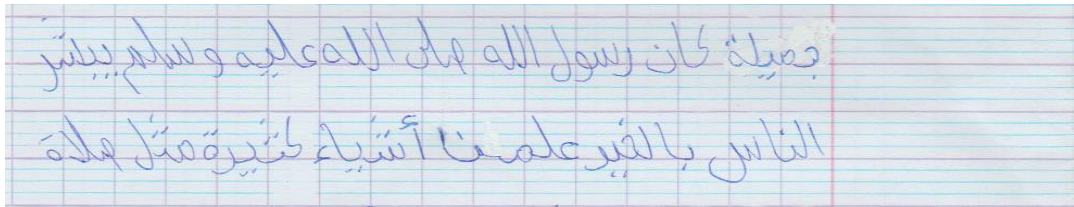 جميلة كان رسول الله صلى الله عليه وسلم يبشر
الناس بالخير علمنا أشياء كثيرة مثل صلاة